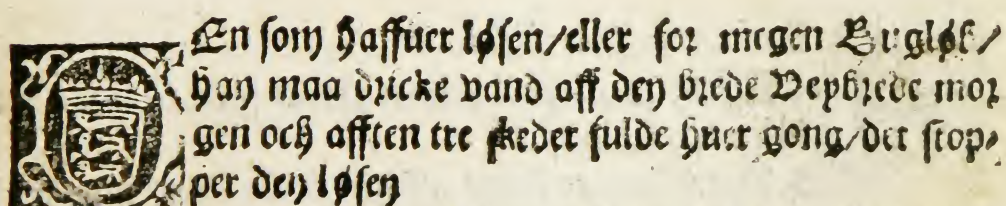 DEn som haffuer løsen/eller for megen Bugløb/
han maa dricke vand aff den brede Veybrede mor
gen och afften tre skeder fulde huer gong/det stop/
per den løsen